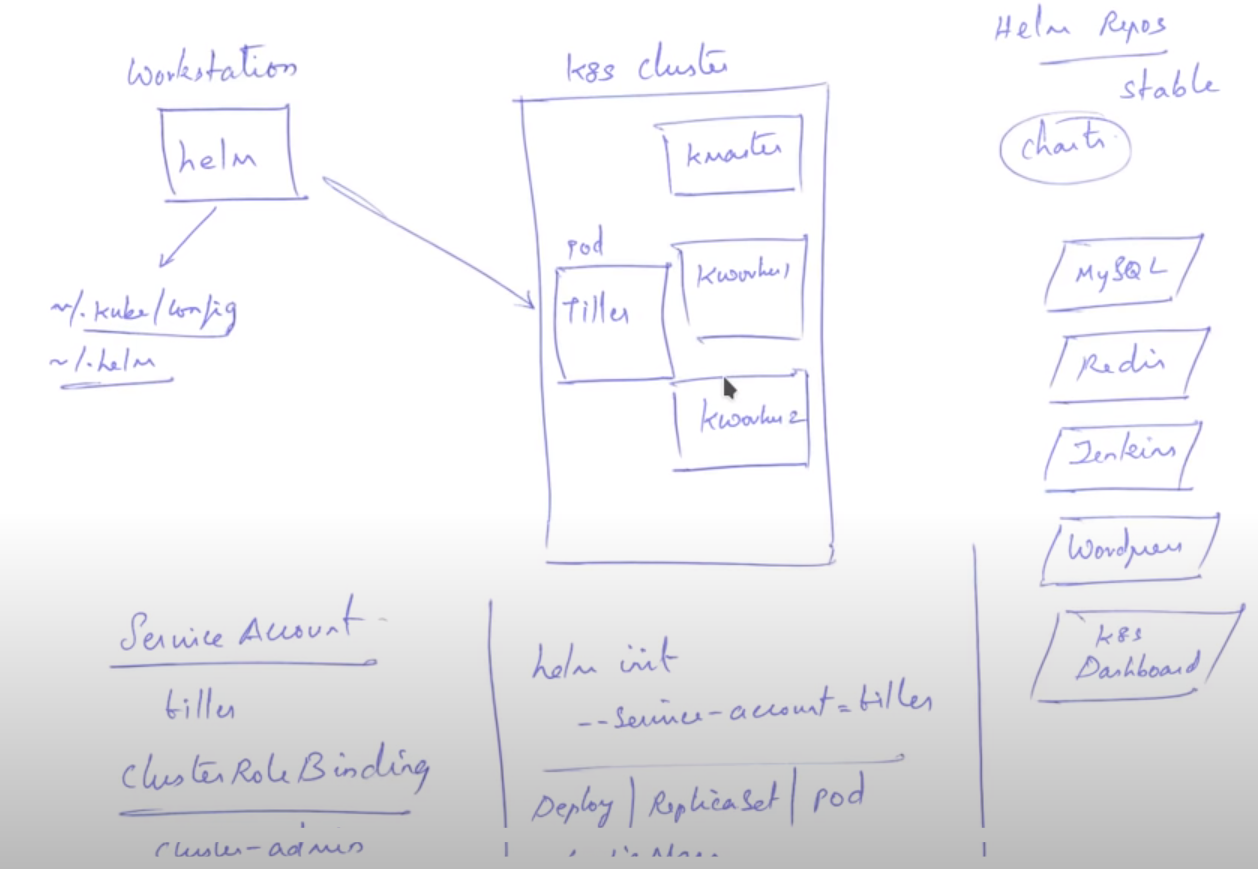 Workstation
helm
~/.kube/config
~/.helm
k8s cluster
kmaster
pod
Tiller
kworker1
kworker2
Helm Repos
stable
Charts
MySQL
Redis
Jenkins
Wordpress
k8s
Dashboard
Service Account
tiller
ClusterRoleBinding
cluster-admin
helm init
--service-account=tiller
Deploy | ReplicaSet | pod